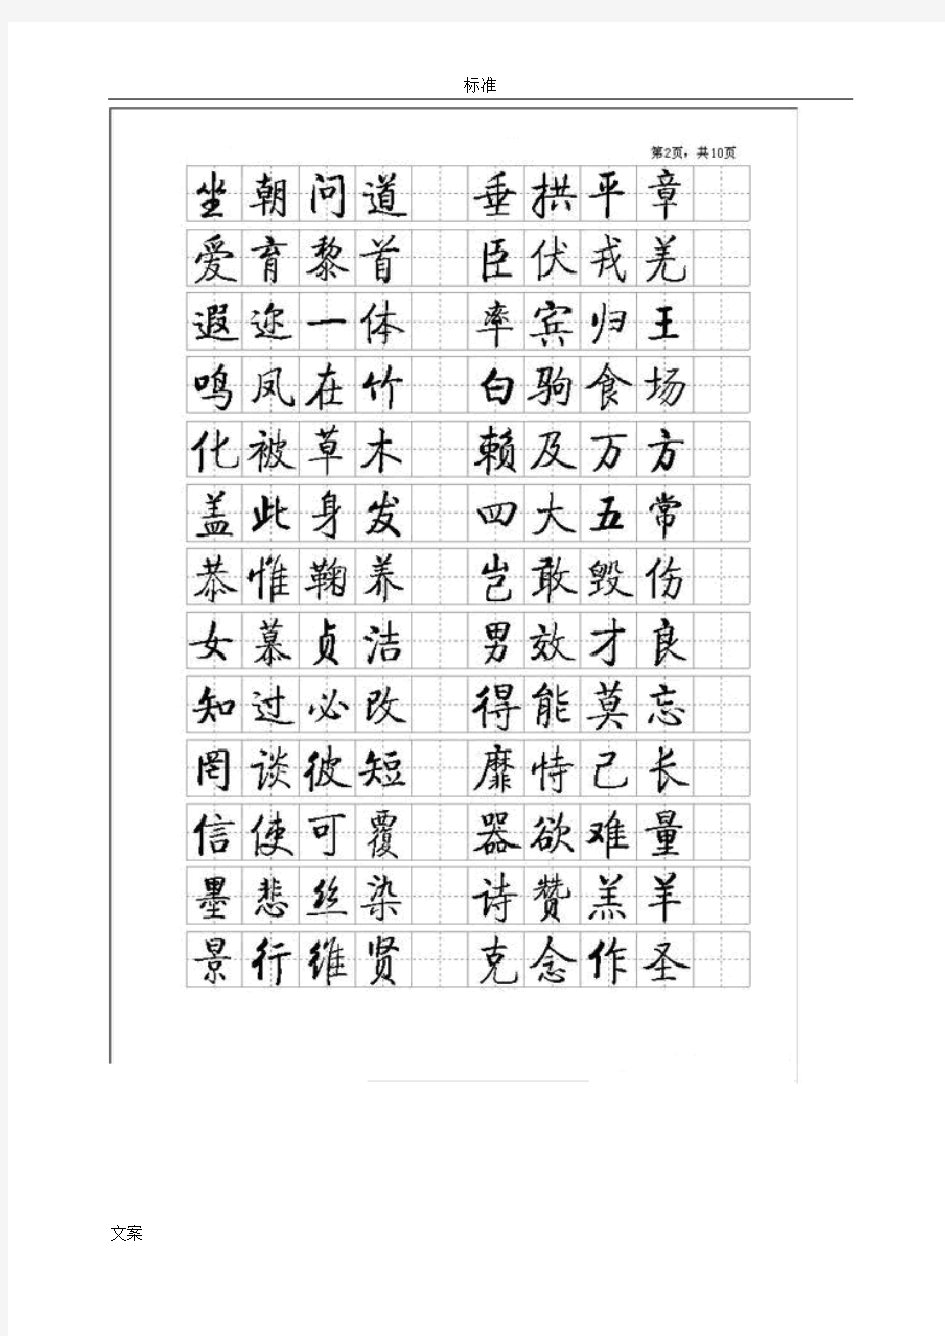 标准
第2页，共10页
坐朝问道 垂拱平章
爱育黎首 臣伏戎羌
遐迩一体 率宾归王
鸣凤在竹 白驹食场
化被草木 赖及万方
盖此身发 四大五常
恭惟鞠养 岂敢毁伤
女慕贞洁 男效才良
知过必改 得能莫忘
罔谈彼短 靡恃己长
信使可覆 器欲难量
墨悲丝染 诗赞羔羊
景行维贤 克念作圣
文案